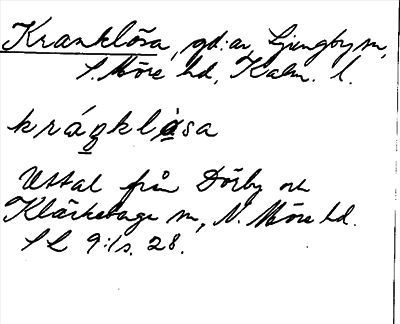 Kranklösa, gd:ar, Ljungby sn,
S. Möre hd, Kalm. l.
kráŋklåsa
Uttal från Dörby och
Kläckeberga sn, N. Möre hd.
SL 9:1 s. 28.